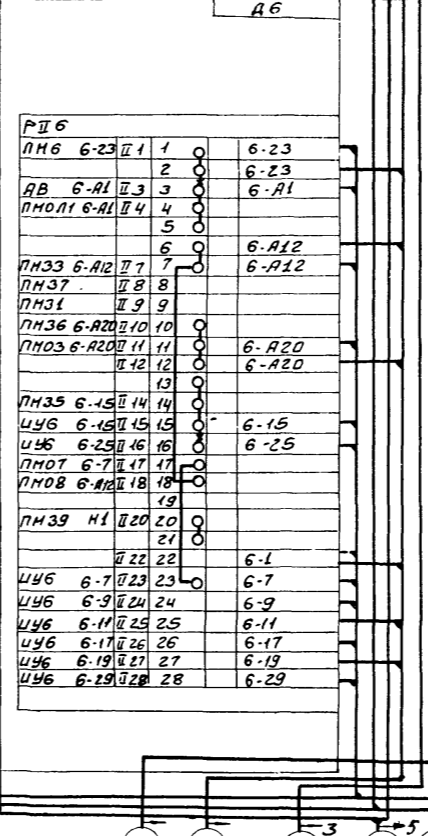 Д6
РII6
ПН6 6-23 II1 1 6-23
2 6-23
АВ 6-А1 II3 3 6-А1
ПМОЛ1 6-А1 II4 4
5
6 6-А12
ПН33 6-А12 II7 7 6-А12
ПН37 II8 8
ПН31 II9 9
ПН36 6-А20 II10 10
ПМ03 6-А20 II11 11 6-А20
II12 12 6-А20
13
ПН35 6-15 II14 14
ЦУ6 6-15 II15 15 6-15
ЦУ6 6-25 II16 16 6-25
ПМ07 6-7 II17 17
ПМ08 6-А12 II18 18
19
ПН39 Н1 II20 20
21
II22 22 6-1
ЦУ6 6-7 II23 23 6-7
ЦУ6 6-9 II24 24 6-9
ЦУ6 6-11 II25 25 6-11
ЦУ6 6-17 II26 26 6-17
ЦУ6 6-19 II27 27 6-19
ЦУ6 6-29 II28 28 6-29
3 5